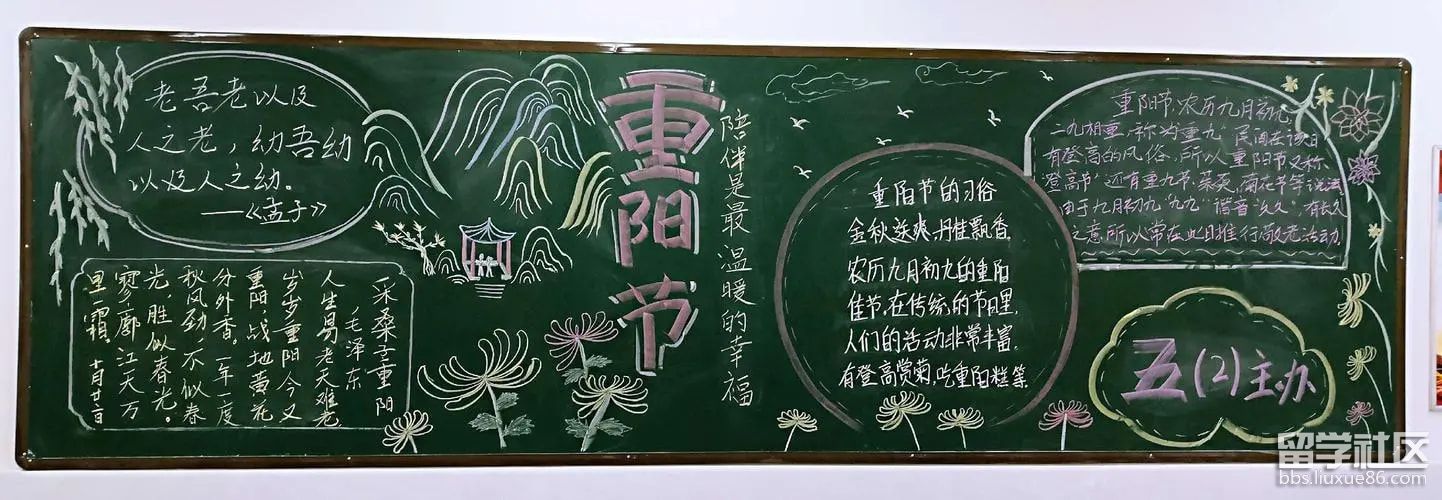 老吾老以及
人之老，幼吾幼
以及人之幼。
——《孟子》
采桑子重阳
毛泽东
人生易老天难老
岁岁重阳今又
重阳，战地黄花
分外香。一年一度
秋风劲，不似春
光，胜似春光。
寥廓江天万
里霜。十月
重阳节
陪伴是最温暖的幸福
重阳节的习俗
金秋送爽,丹桂飘香.
农历九月初九的重阳
佳节,在传统的节日里,
人们的活动非常丰富.
有登高赏菊,吃重阳糕等.
重阳节,农历九月初九,
二九相重,称为"重九".民间在该日
有登高的风俗,所以重阳节又称
"登高节".还有重九节、茱萸、菊花节等说法
由于九月初九"九九"谐音"久久",有长久
之意所以常在此日推行敬老活动.
五(2)主办
留学社区
bbs.liuxue86.com